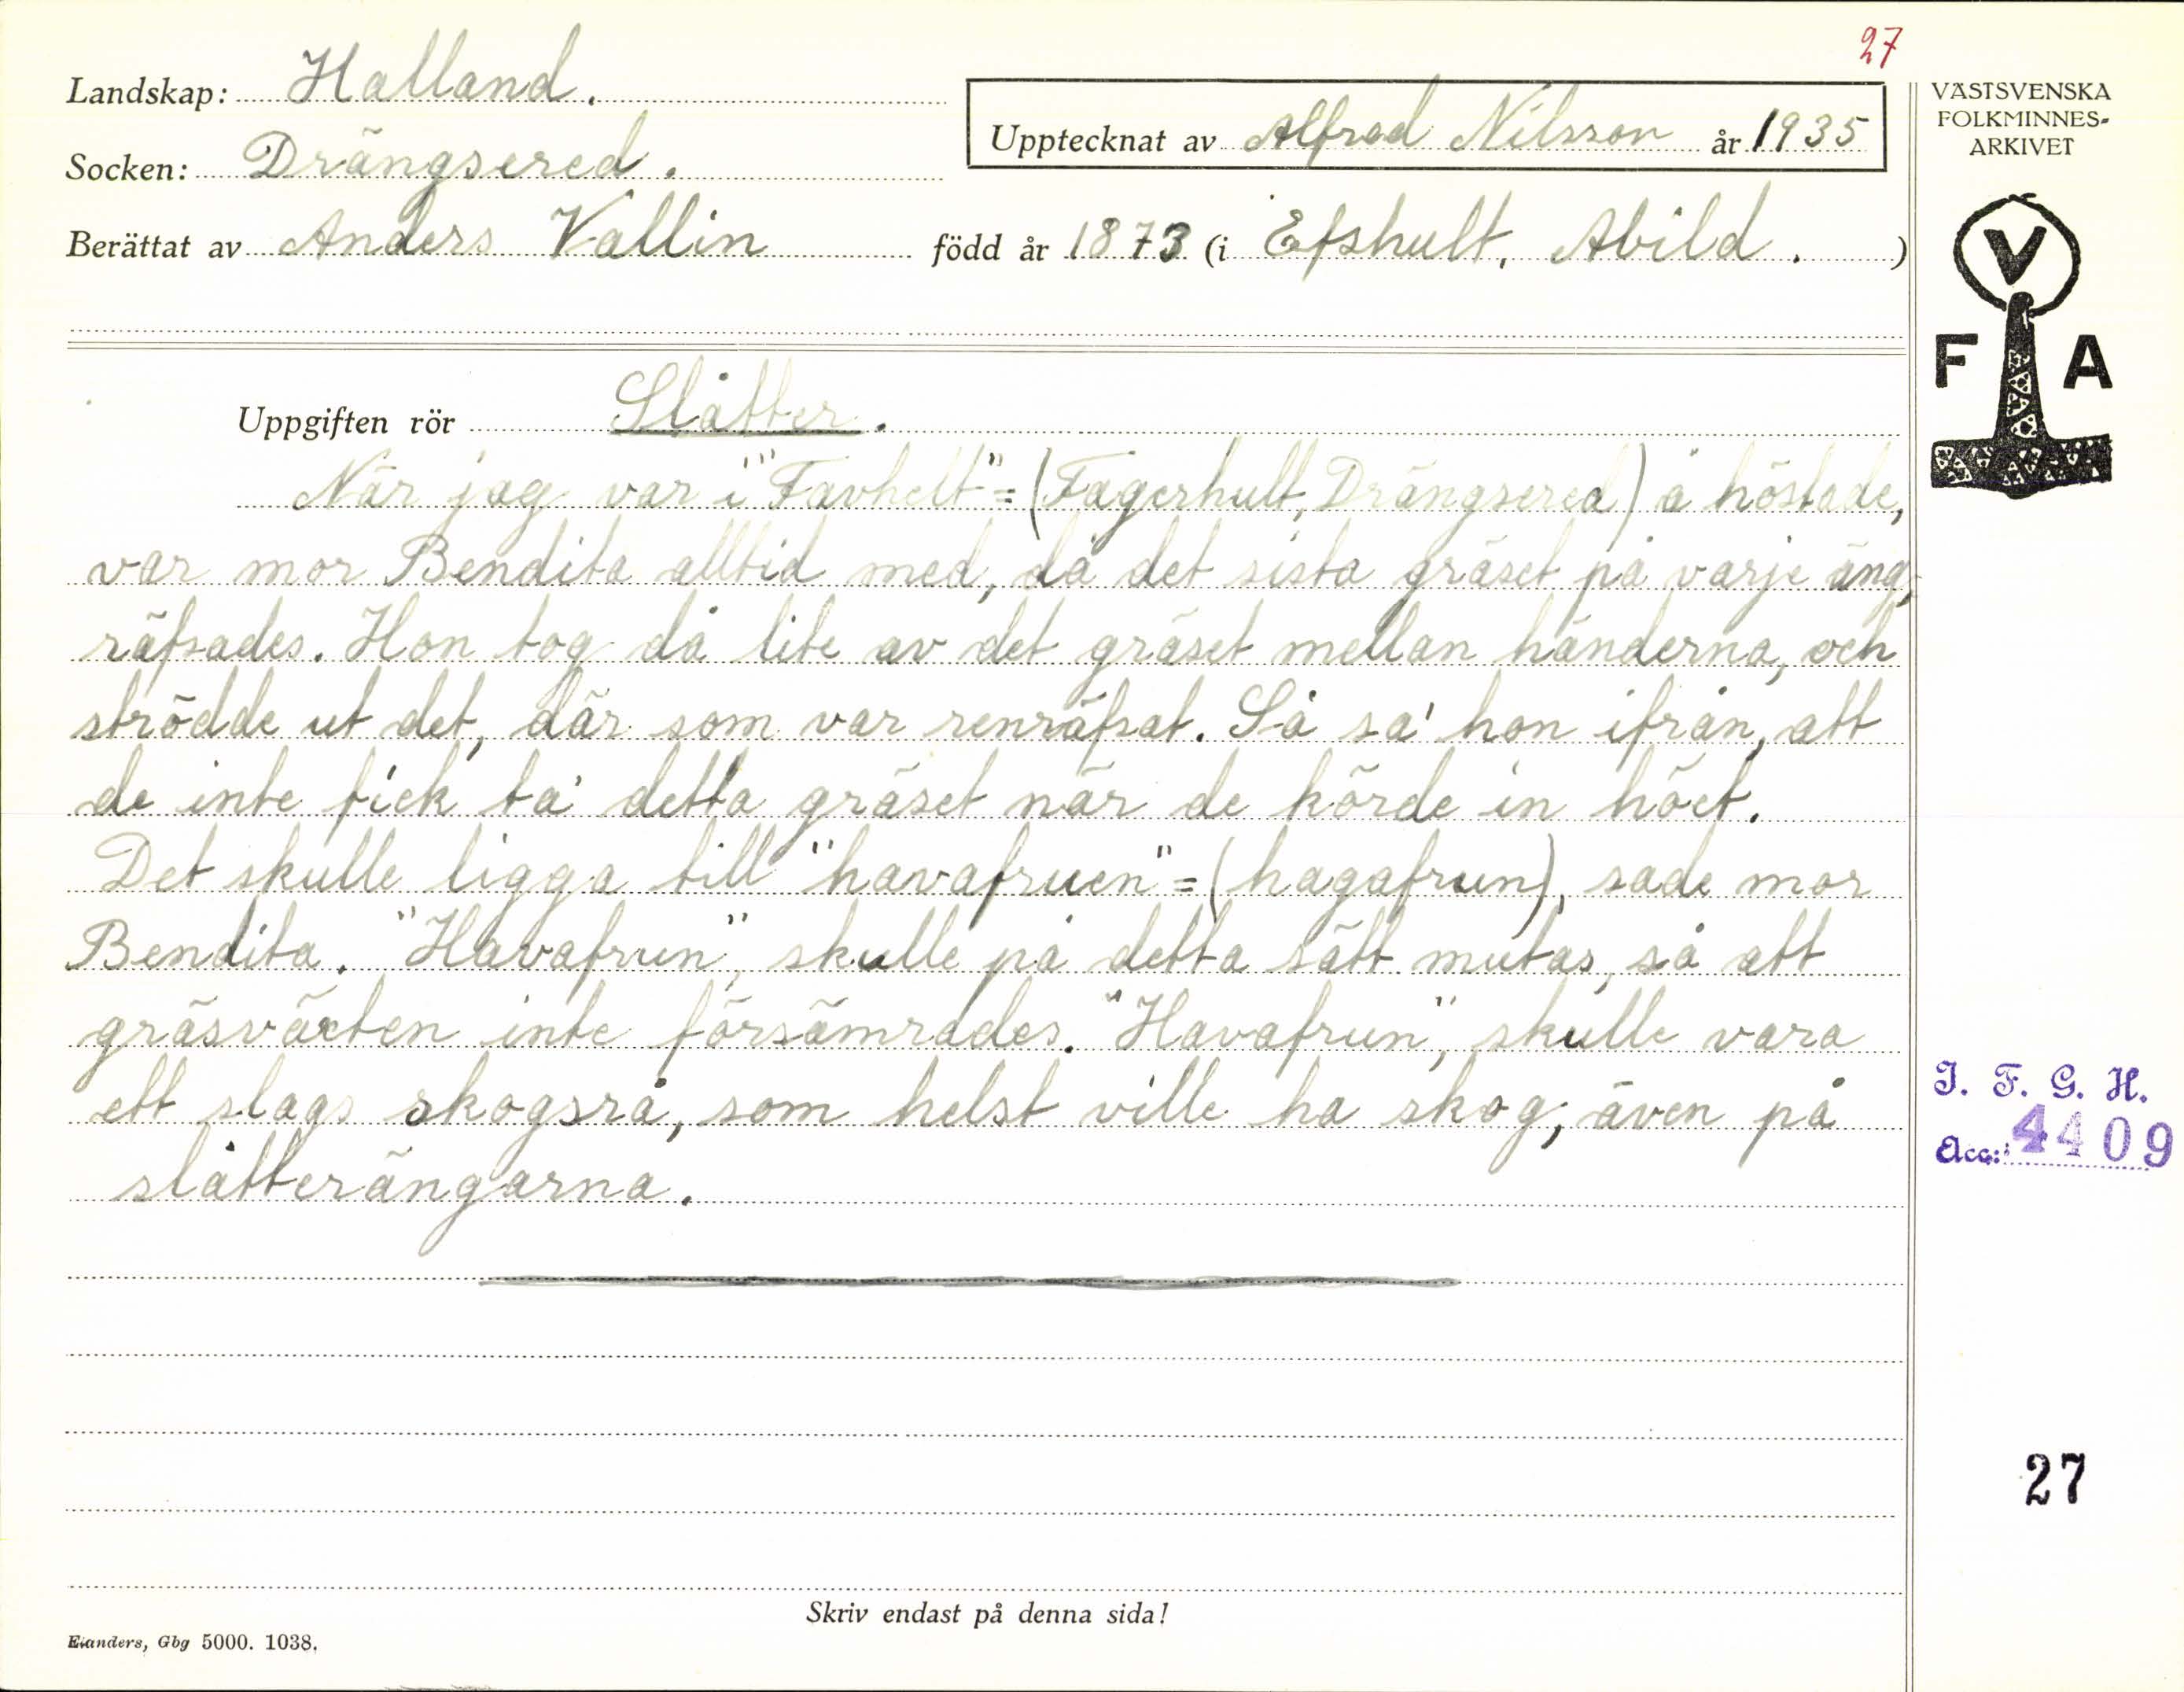 27
Landskap: Halland.
Upptecknat av Alfred Nilsson år 1935
Socken: Drängsered.
Berättat av Anders Vallin född år 1873 (i Efshult, Abild.)
VÄSTSVENSKA
FOLKMINNES-
ARKIVET
V
F A
Uppgiften rör Slåtter.
När jag var i "Favhelt" = (Fagerhult, Drängsered) å höstade,
var mor Bendita alltid med, då det sista gräset på varje äng,
räfsades. Hon tog då lite av det gräset mellan händerna, och
strödde ut det, där som var renräfsat. Så sa' hon ifrån, att
de inte fick ta' detta gräset när de körde in höet.
Det skulle ligga till "havafruen" = (hagafrun), sade mor
Bendita. "Havafrun", skulle på detta sätt mutas, så att
gräsväxten inte försämrades. "Havafrun", skulle vara
ett slags skogsrå, som helst ville ha skog, även på
slåtterängarna.
I. F. G. H.
Acc: 4409
27
Skriv endast på denna sida!
Elanders, Gbg 5000. 1038.